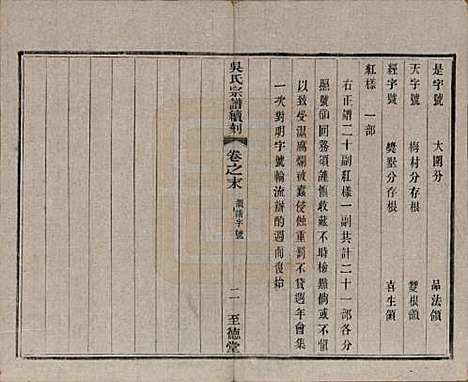 是字號 大圍分 品法領
天字號 梅村分存根 雙根領
經字號 樊墅分存根 喜生領
紅樣 一部
右正譜二十副紅樣一副共計二十一部各分
照號領囘務須謹慎收藏不時檢點倘或不慎
以致受濕腐爛被蠹侵蝕重罰不貸週年會集
一次對明字號輪流辦酌週而復始
吳氏宗譜續刻 卷之末 領譜字號 二 至德堂